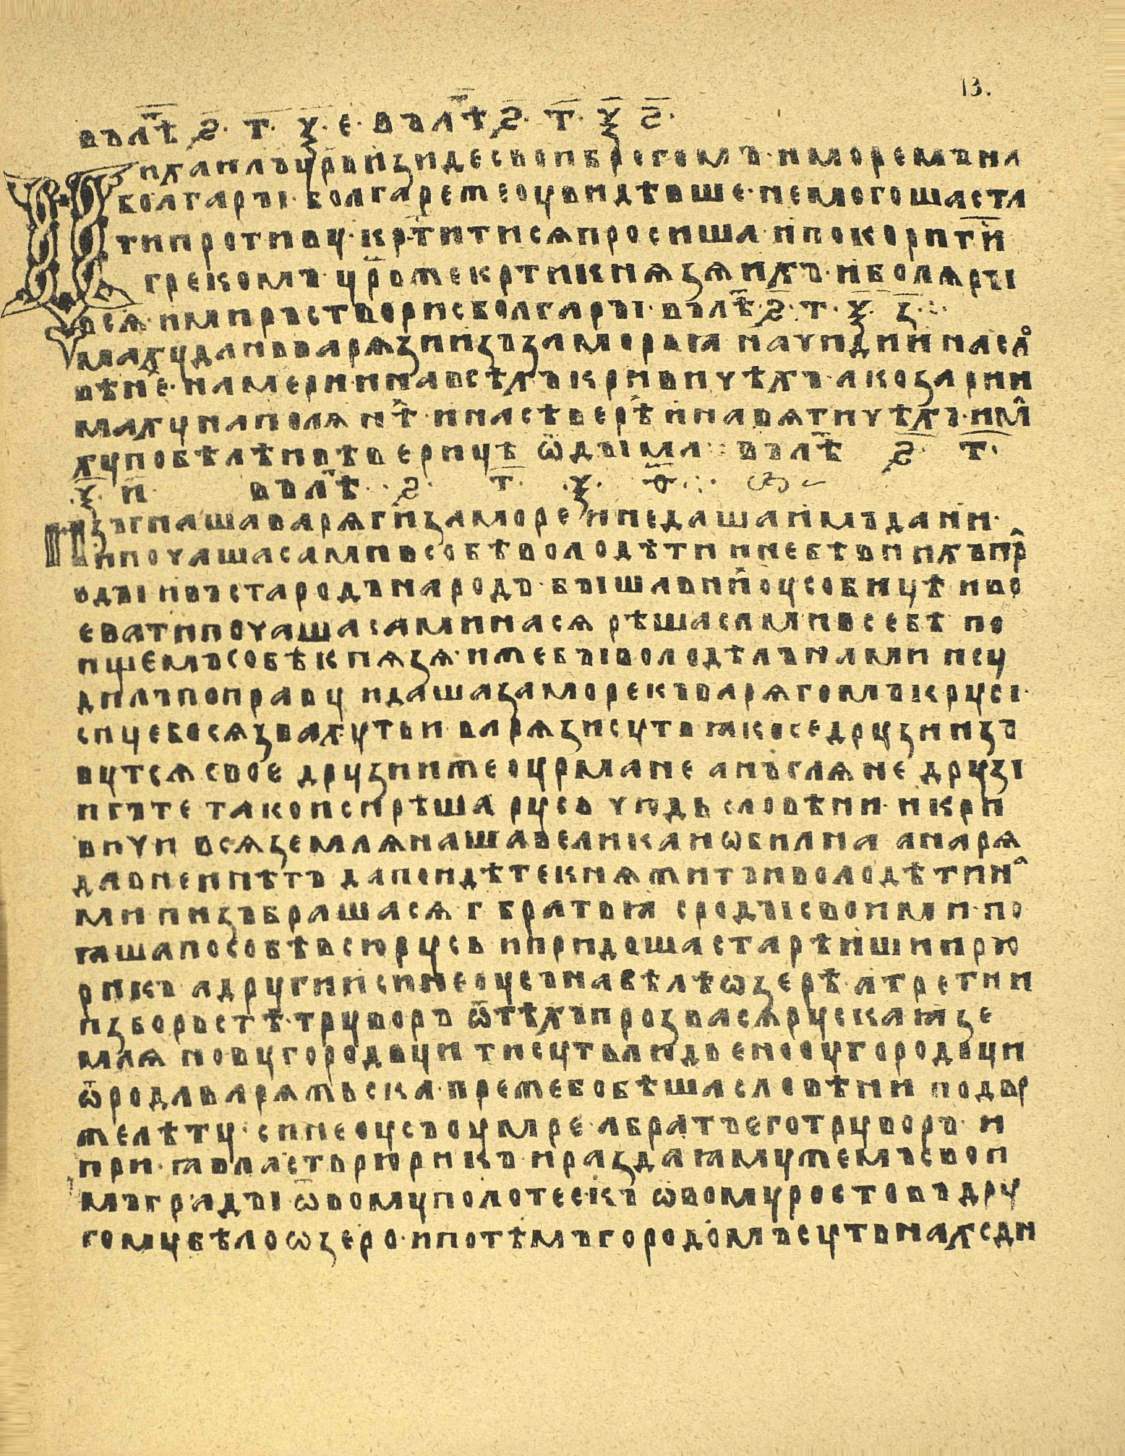 13.
въ лⷮѣ ҂ѕ҃ · т҃ · ѯ҃ · е · въ лⷮѣ ҂ѕ҃ · т҃ · ѯ҃ ѕ҃ ·
Михаилъ цр҃ь изиде съ вои брегомъ · и моремъ на
болгары · болгаре же оувидѣвше · не могоша ста
ти противу · крⷭ҇тити сѧ просиша · и покоритиⷭ
грекомъ · цр҃ь же крⷭ҇ти кнѧзѧ ихъ · и болѧры
всѧ · и миръ створи с болгары · въ лⷮѣ · ҂ѕ҃ · т҃ · ѯ҃ · з҃ ·:·
имаху дань варѧзи изъ заморьꙗ на чюди и на сло
вѣнеⷯ · на мери · и на всѣхъ кривичѣхъ · а козари и
маху на полѧнѣⷯ · и на сѣверѣⷯ и на вѧтичѣхъ · имаⷯ
ху по бѣлѣи вѣверицѣ ѿ дыма ·:· въ лⷮѣ ҂ѕ҃ · т҃ ·
· ѯ҃ · и҃ · въ лⷮѣ · ҂ѕ҃ · т҃ · ѯ҃ · ѳ҃ ·:·
Изъгнаша варѧги за море и не даша имъ дани ·
и почаша сами в собѣ володѣти и не бѣ в нихъ прⷡ
ды и въста родъ на родъ · быша в ниⷯ оусобицѣ и во
евати почаша сами на сѧ рѣша сами в себѣ по
ищемъ собѣ кнѧзѧ · иже бы володѣлъ нами и су
дилъ по праву идаша за море къ варѧгомъ к русі ·
сице бо сѧ звахуть и варѧзи суть ꙗко се друзии зъ
вутсѧ свое друзии же оурмане анъглѧне друзі
и гъте тако и си рѣша русь чюдь словѣни · и кри
вичи всѧ землѧ наша велика и ѡбилна а нарѧ
да в неи нѣтъ да поидѣте кнѧжитъ и володѣти на
ми и изъбраша сѧ г҃ братьꙗ с роды своими · по
ꙗша по собѣ всю русь и придоша старѣишии рю
рикъ а другии синеоусъ на бѣлѣѡзерѣ а третии
изборьстѣ · труворъ ѿ тѣхъ прозва сѧ рускаꙗ зе
млѧ новугородьци ти суть людье нооугородьци
ѿ рода варѧжьска · преже бо бѣша словѣни по дъву
же лѣту · синеоусъ оумре · а братъ его труворъ · и
приꙗ власть рюрикъ и раздаꙗ мужемъ свои
мъ грады ѡвому полотескъ ѡвому ростовъ дру
гому бѣлоѡзеро · и по тѣмъ городомъ суть находи